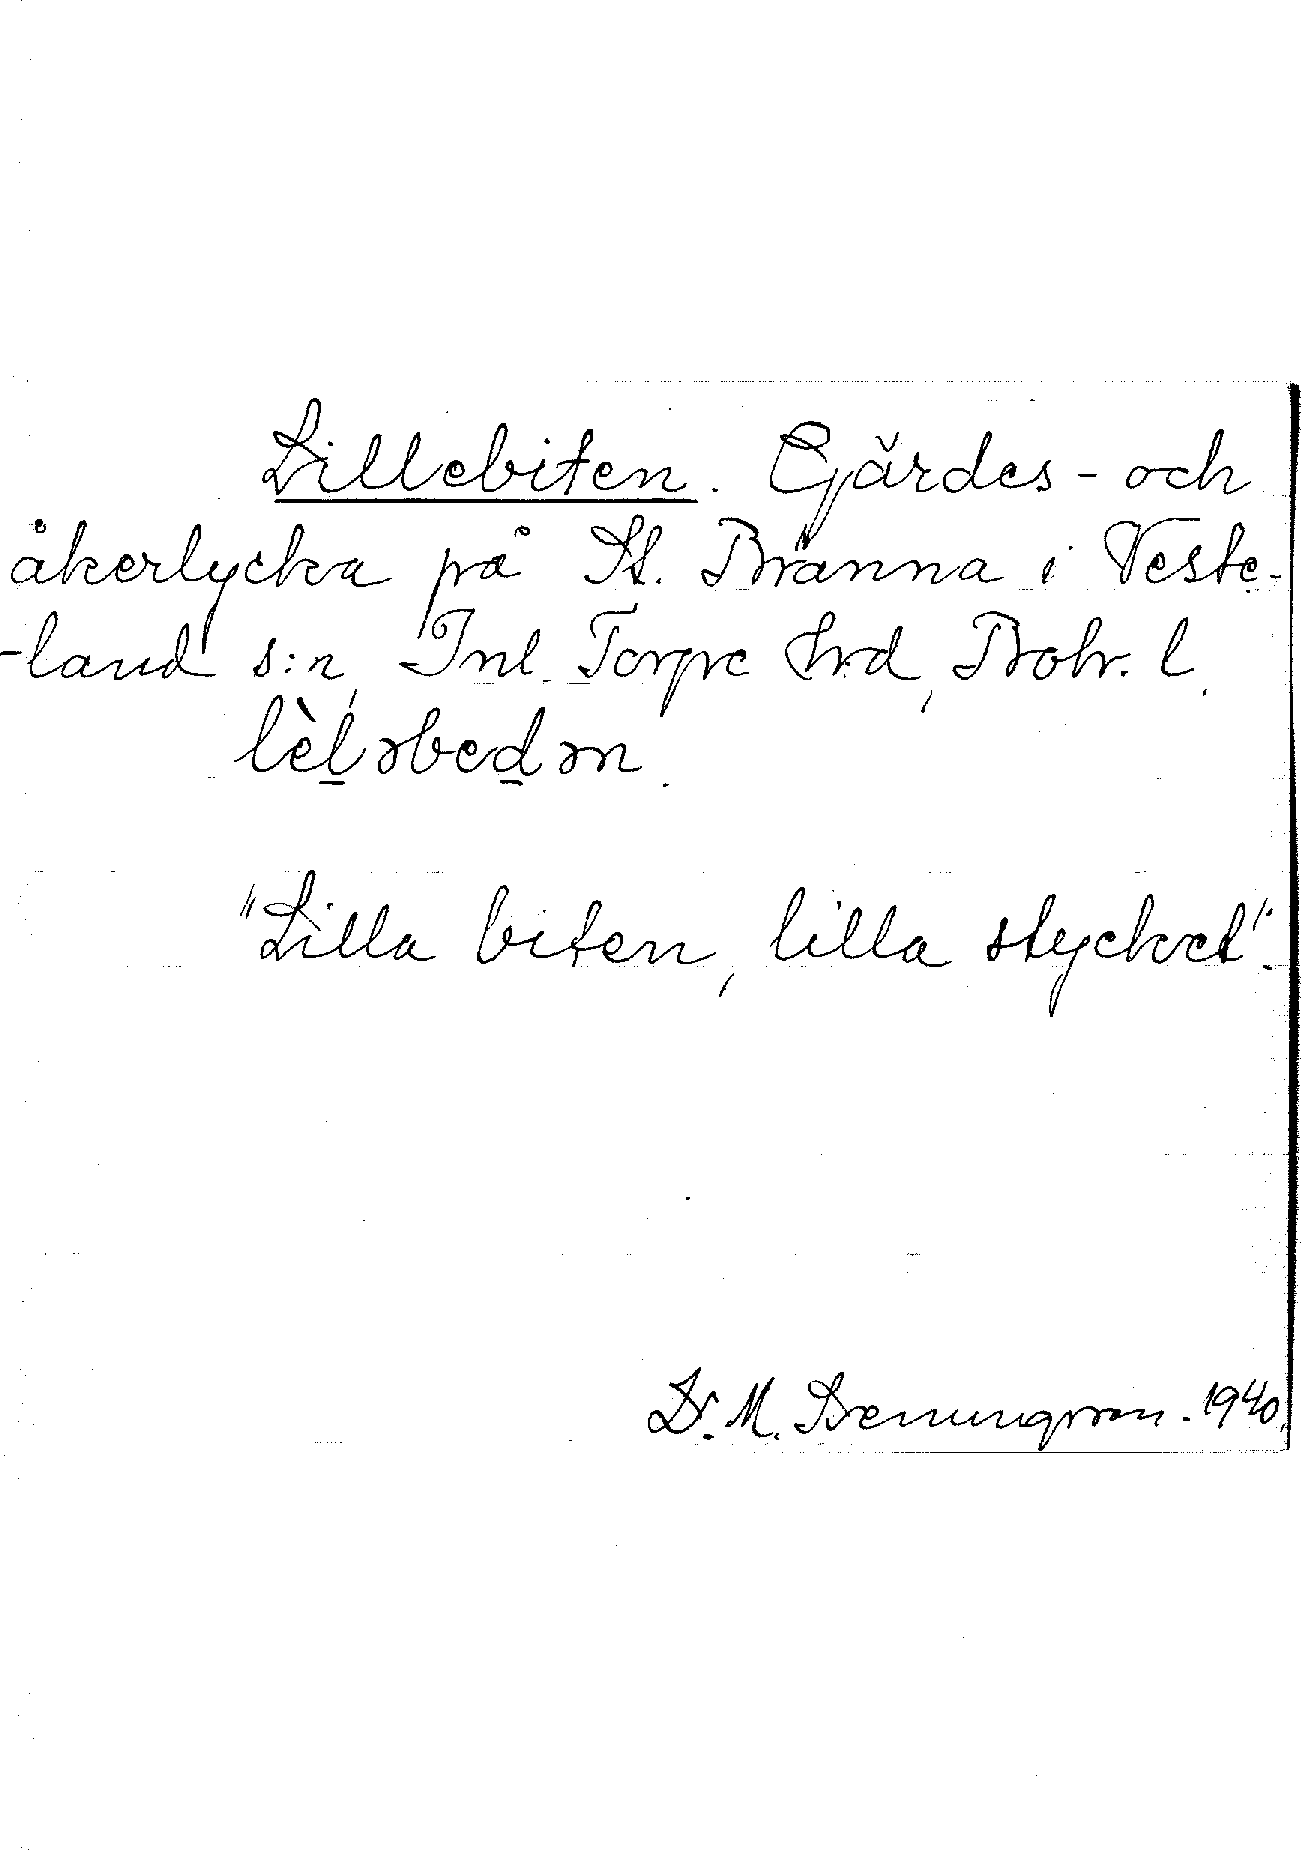 Lillebiten. Gärdes- och
åkerlycka på St. Bränna i Veste-
-land s:n, Inl. Torpe hrd, Boh. l.
lèḻəbeḏən.
"Lilla biten, lilla stycket".
Dr. M. 1940.